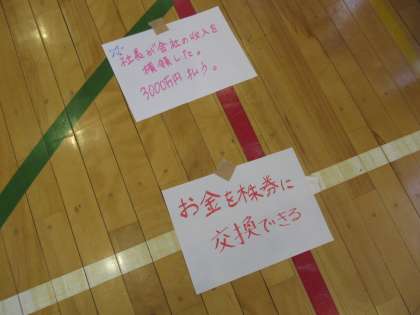 社長が会社の収入を
横領した。
3000万円払う。
お金を株券に
交換できる